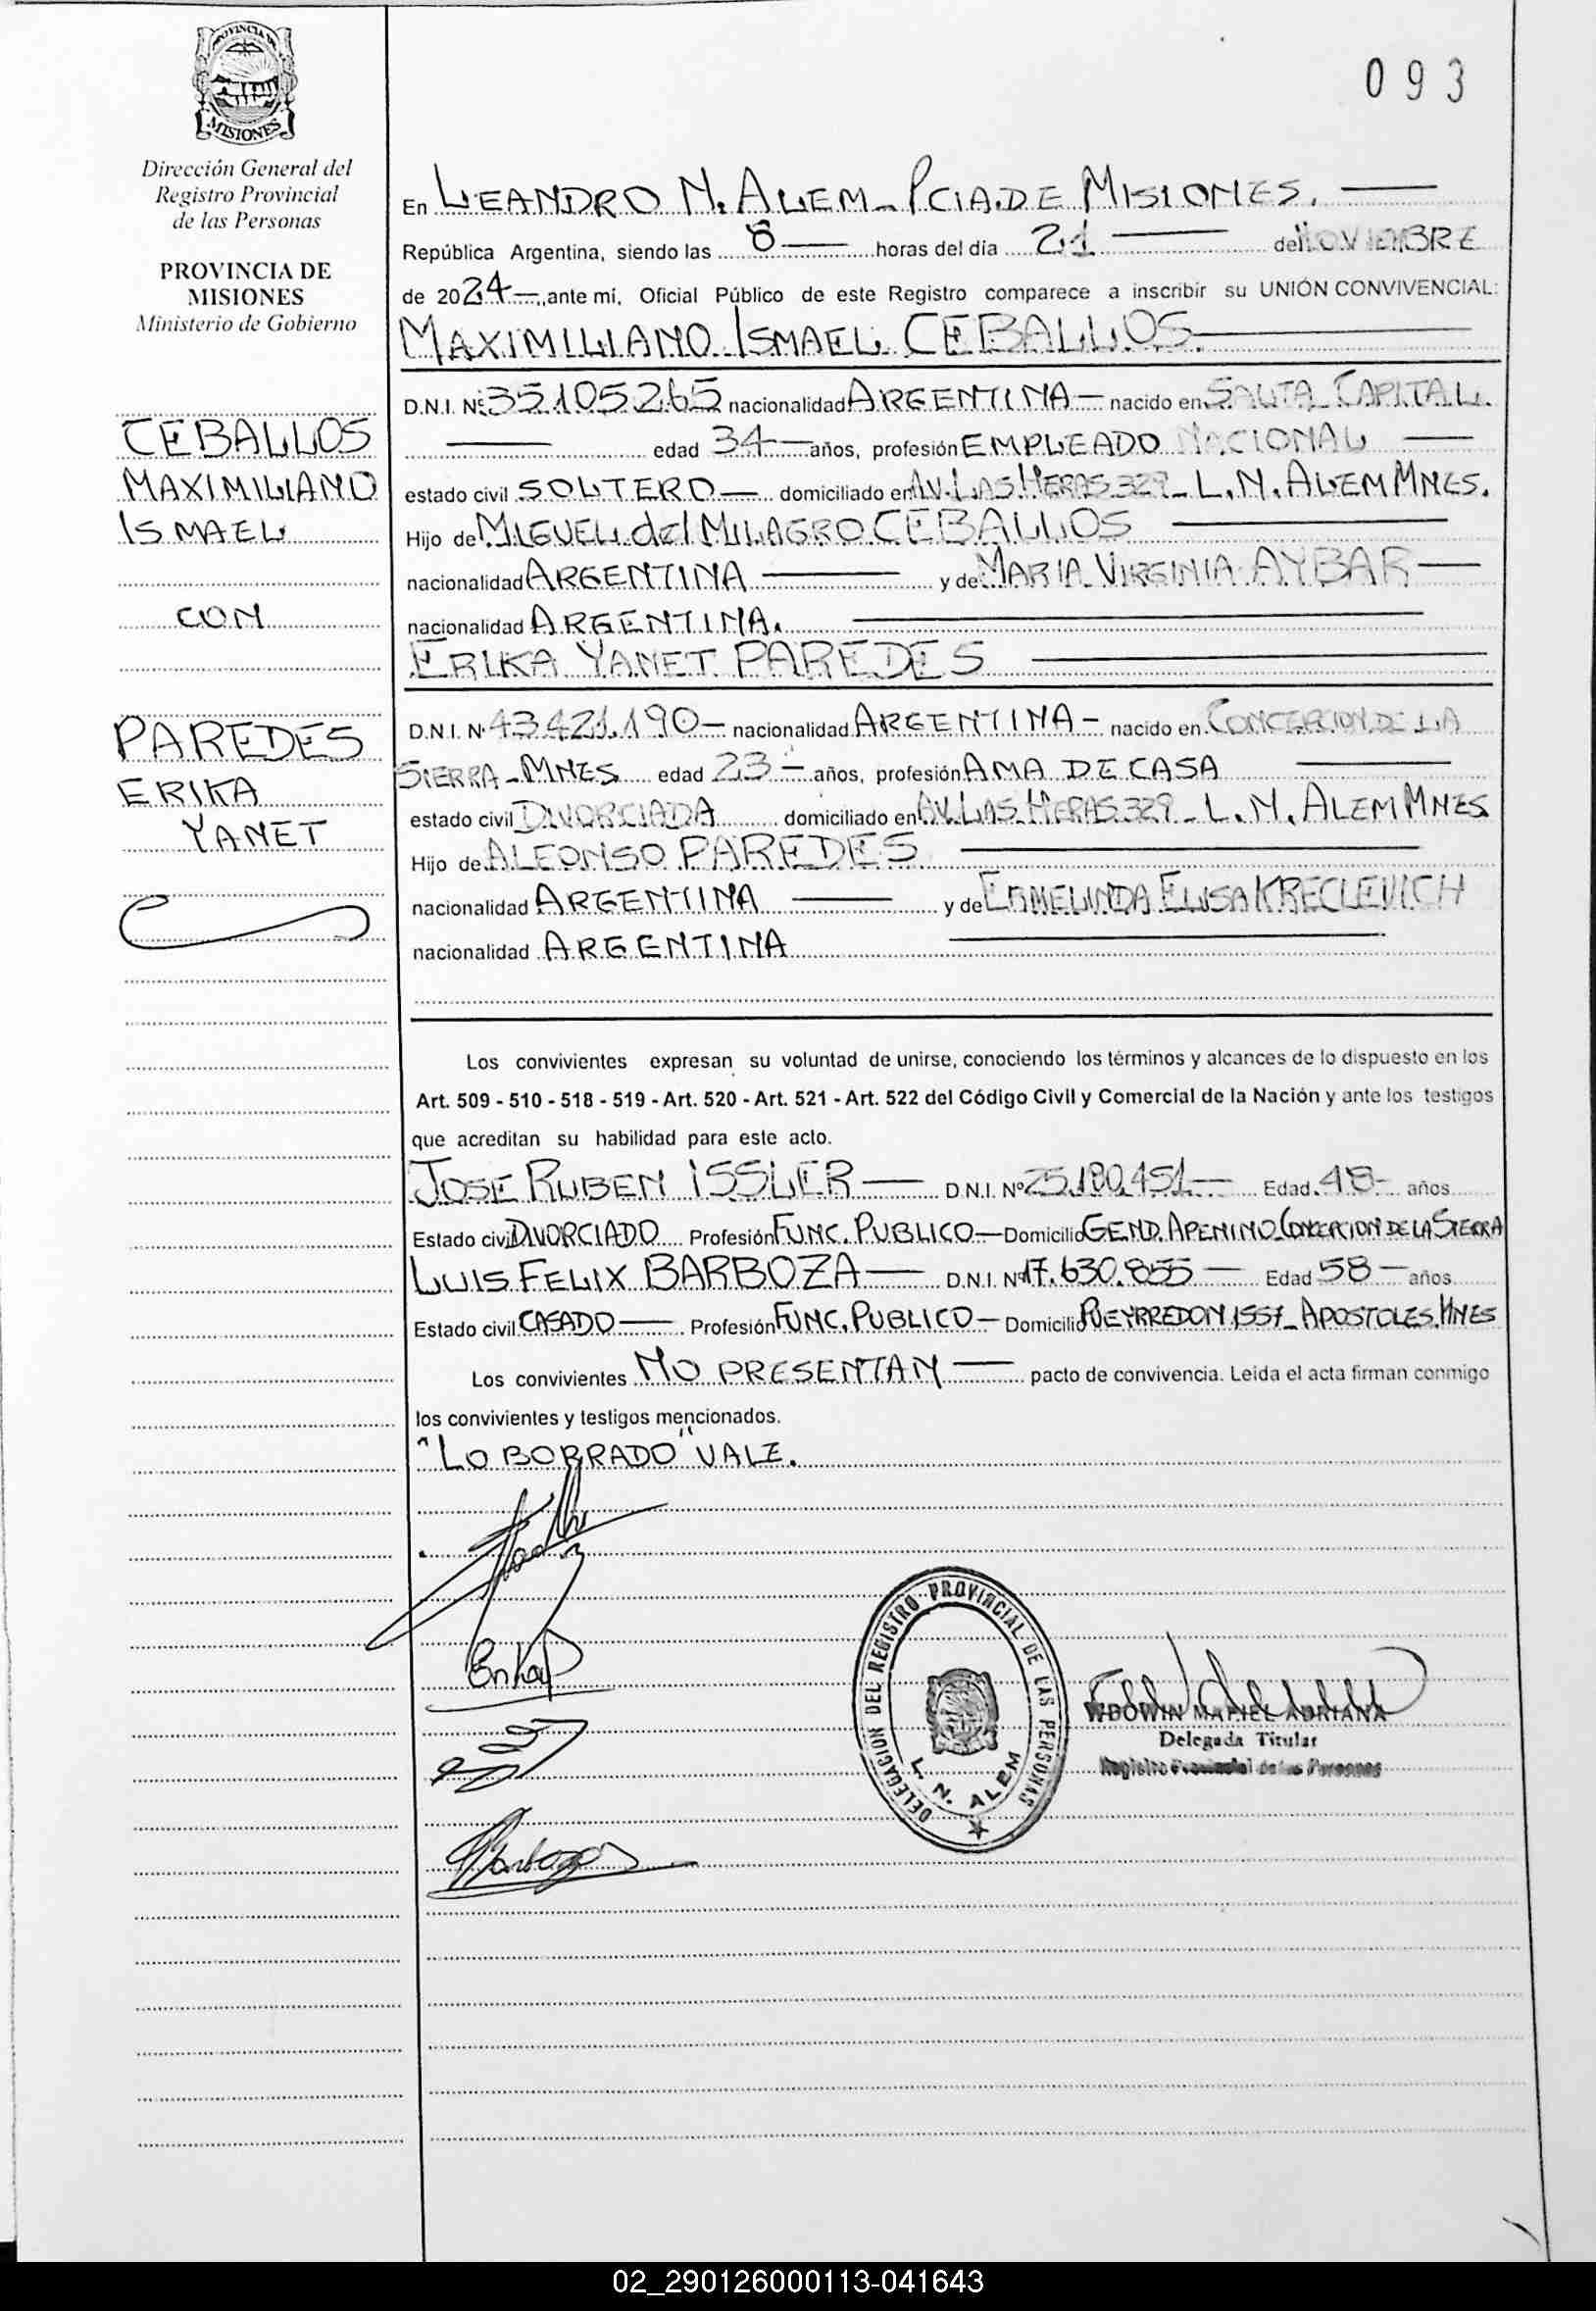 093
PROVINCIA DE
MISIONES
Dirección General del
Registro Provincial
de las Personas
PROVINCIA DE
MISIONES
Ministerio de Gobierno
CEBALLOS
MAXIMILIANO
ISMAEL
CON
PAREDES
ERIKA
YANET
En LEANDRO N. ALEM - PCIA DE MISIONES.
República Argentina, siendo las 8 horas del día 21 de NOVIEMBRE
de 2024 ante mí, Oficial Público de este Registro comparece a inscribir su UNIÓN CONVIVENCIAL:
MAXIMILIANO ISMAEL CEBALLOS.
D.N.I. Nº 35.105.265 nacionalidad ARGENTINA - nacido en SALTA CAPITAL.
edad 34 años, profesión EMPLEADO NACIONAL
estado civil SOLTERO domiciliado en AV. LAS HERAS 329 - L.N. ALEM MNES.
Hijo de MIGUEL del MILAGRO CEBALLOS
nacionalidad ARGENTINA y de MARIA VIRGINIA AYBAR
nacionalidad ARGENTINA.
ERIKA YANET PAREDES
D.N.I. Nº 43.421.190 - nacionalidad ARGENTINA - nacido en CONCEPCION DE LA
SIERRA - MNES edad 23 - años, profesión AMA DE CASA
estado civil DIVORCIADA domiciliado en AV. LAS HERAS 329 - L.N. ALEM MNES
Hijo de ALFONSO PAREDES
nacionalidad ARGENTINA y de ERMELINDA ELISA KRECLEVICH
nacionalidad ARGENTINA
Los convivientes expresan su voluntad de unirse, conociendo los términos y alcances de lo dispuesto en los
Art. 509 - 510 - 518 - 519 - Art. 520 - Art. 521 - Art. 522 del Código Civil y Comercial de la Nación y ante los testigos
que acreditan su habilidad para este acto.
JOSE RUBEN ISSLER D.N.I. Nº 25.180.451 Edad 48 - años
Estado civil DIVORCIADO Profesión FUNC. PUBLICO - Domicilio GEND. APENINO CONCEPCION DE LA SIERRA
LUIS FELIX BARBOZA D.N.I. Nº 17.630.855 Edad 58 - años
Estado civil CASADO Profesión FUNC. PUBLICO - Domicilio PUEYRREDON 1557 - APOSTOLES. MNES
Los convivientes NO PRESENTAN pacto de convivencia. Leída el acta firman conmigo
los convivientes y testigos mencionados.
"LO BORRADO" VALE.
Erika P
DELEGACION DEL REGISTRO PROVINCIAL DE LAS PERSONAS
L. N. ALEM
WDOWIN MARIEL ADRIANA
Delegada Titular
Registro Provincial de las Personas
02_290126000113-041643